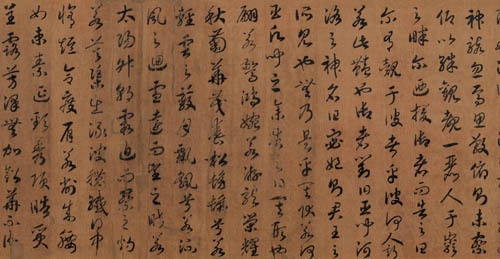 神駭忽焉思散俯則未察
仰以殊觀覩一麗人于巖
之畔尔迺援御者而告之曰
尔有覿于彼者乎彼何人斯
若此豔也御者對曰臣聞河
洛之神名曰宓妃則君王之
所見也無乃是乎其狀若何
臣願聞之余告之曰其形也
翩若驚鴻婉若游龍榮曜
秋菊華茂春松髣髴兮若
輕雲之蔽月飄飖兮若流
風之迴雪遠而望之皎若
太陽升朝霞迫而察之灼
若芙蕖出淥波穠纖得中
脩短合度肩若削成腰
如束素延頸秀項皓質
呈露芳澤無加鉛華不御